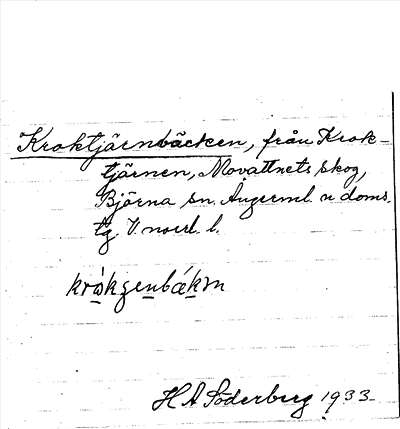 Kroktjärnbäcken, från Krok-
tjärnen, Movattnets skog,
Björna sn. Ångerml. n doms.
tg. V. norrl. l.
kròkʒenbækṃ
H A Söderberg 1933